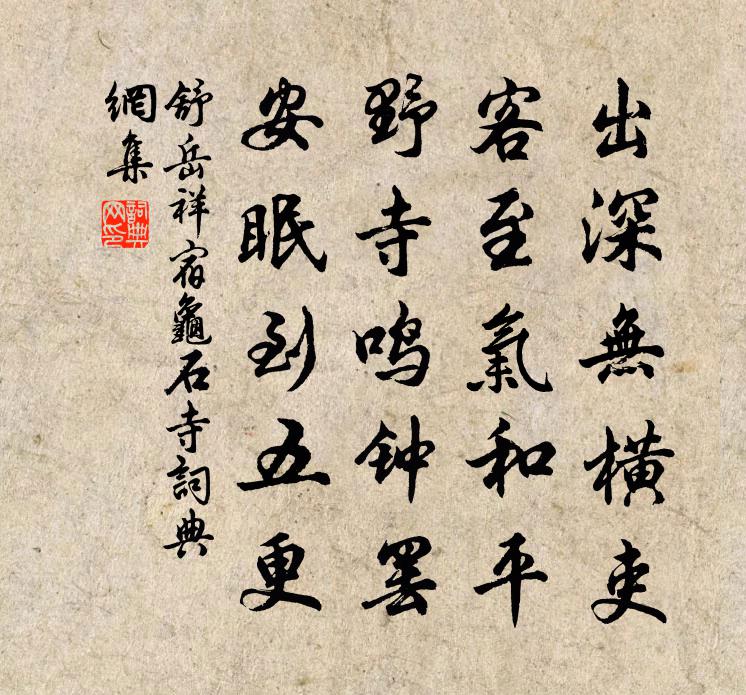 出深無橫吏
客至氣和平
野寺鸣钟罢
安眠到五更
舒岳祥宿龜石寺詞典
網集
詞典
网印